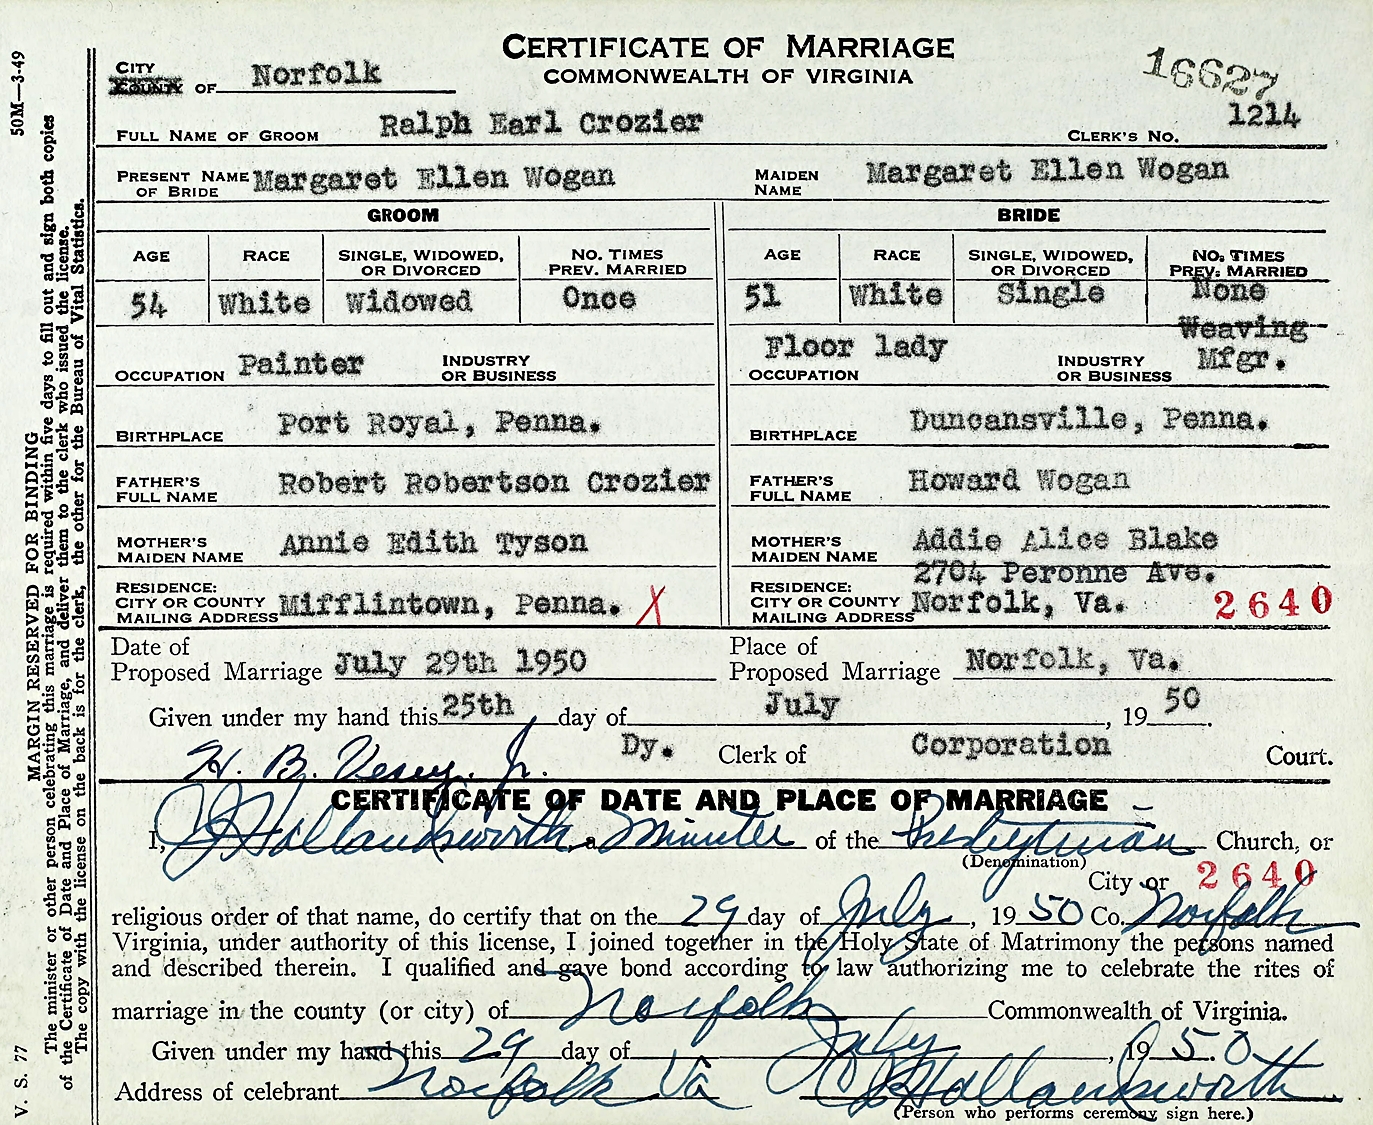 CERTIFICATE OF MARRIAGE
COMMONWEALTH OF VIRGINIA
16627
CITY
COUNTY OF Norfolk
FULL NAME OF GROOM Ralph Earl Crozier CLERK'S NO. 1214
PRESENT NAME OF BRIDE Margaret Ellen Wogan MAIDEN NAME Margaret Ellen Wogan
GROOM BRIDE
AGE RACE SINGLE, WIDOWED, OR DIVORCED NO. TIMES PREV. MARRIED AGE RACE SINGLE, WIDOWED, OR DIVORCED NO. TIMES PREV. MARRIED
54 White Widowed Once 51 White Single None
OCCUPATION Painter INDUSTRY OR BUSINESS OCCUPATION Floor lady INDUSTRY OR BUSINESS Weaving Mfgr.
BIRTHPLACE Port Royal, Penna. BIRTHPLACE Duncansville, Penna.
FATHER'S FULL NAME Robert Robertson Crozier FATHER'S FULL NAME Howard Wogan
MOTHER'S MAIDEN NAME Annie Edith Tyson MOTHER'S MAIDEN NAME Addie Alice Blake
RESIDENCE: CITY OR COUNTY MAILING ADDRESS Mifflintown, Penna. X RESIDENCE: CITY OR COUNTY MAILING ADDRESS 2704 Peronne Ave. Norfolk, Va. 2640
Date of Proposed Marriage July 29th 1950 Place of Proposed Marriage Norfolk, Va.
Given under my hand this 25th day of July, 1950.
H. B. Vesey, Jr. Dy. Clerk of Corporation Court.
CERTIFICATE OF DATE AND PLACE OF MARRIAGE
I, C J Hollandsworth, a Minister of the Presbyterian Church, or
(Denomination)
City or 2640
religious order of that name, do certify that on the 29 day of July, 1950 Co. Norfolk
Virginia, under authority of this license, I joined together in the Holy State of Matrimony the persons named
and described therein. I qualified and gave bond according to law authorizing me to celebrate the rites of
marriage in the county (or city) of Norfolk Commonwealth of Virginia.
Given under my hand this 29 day of July, 1950
Address of celebrant Norfolk Va C J Hollandsworth
(Person who performs ceremony sign here.)
V. S. 77 MARGIN RESERVED FOR BINDING 50M—3-49
The minister or other person celebrating this marriage is required within five days to fill out and sign both copies
of the Certificate of Date and Place of Marriage, and deliver them to the clerk who issued the license.
The copy with the license on the back is for the clerk, the other for the Bureau of Vital Statistics.